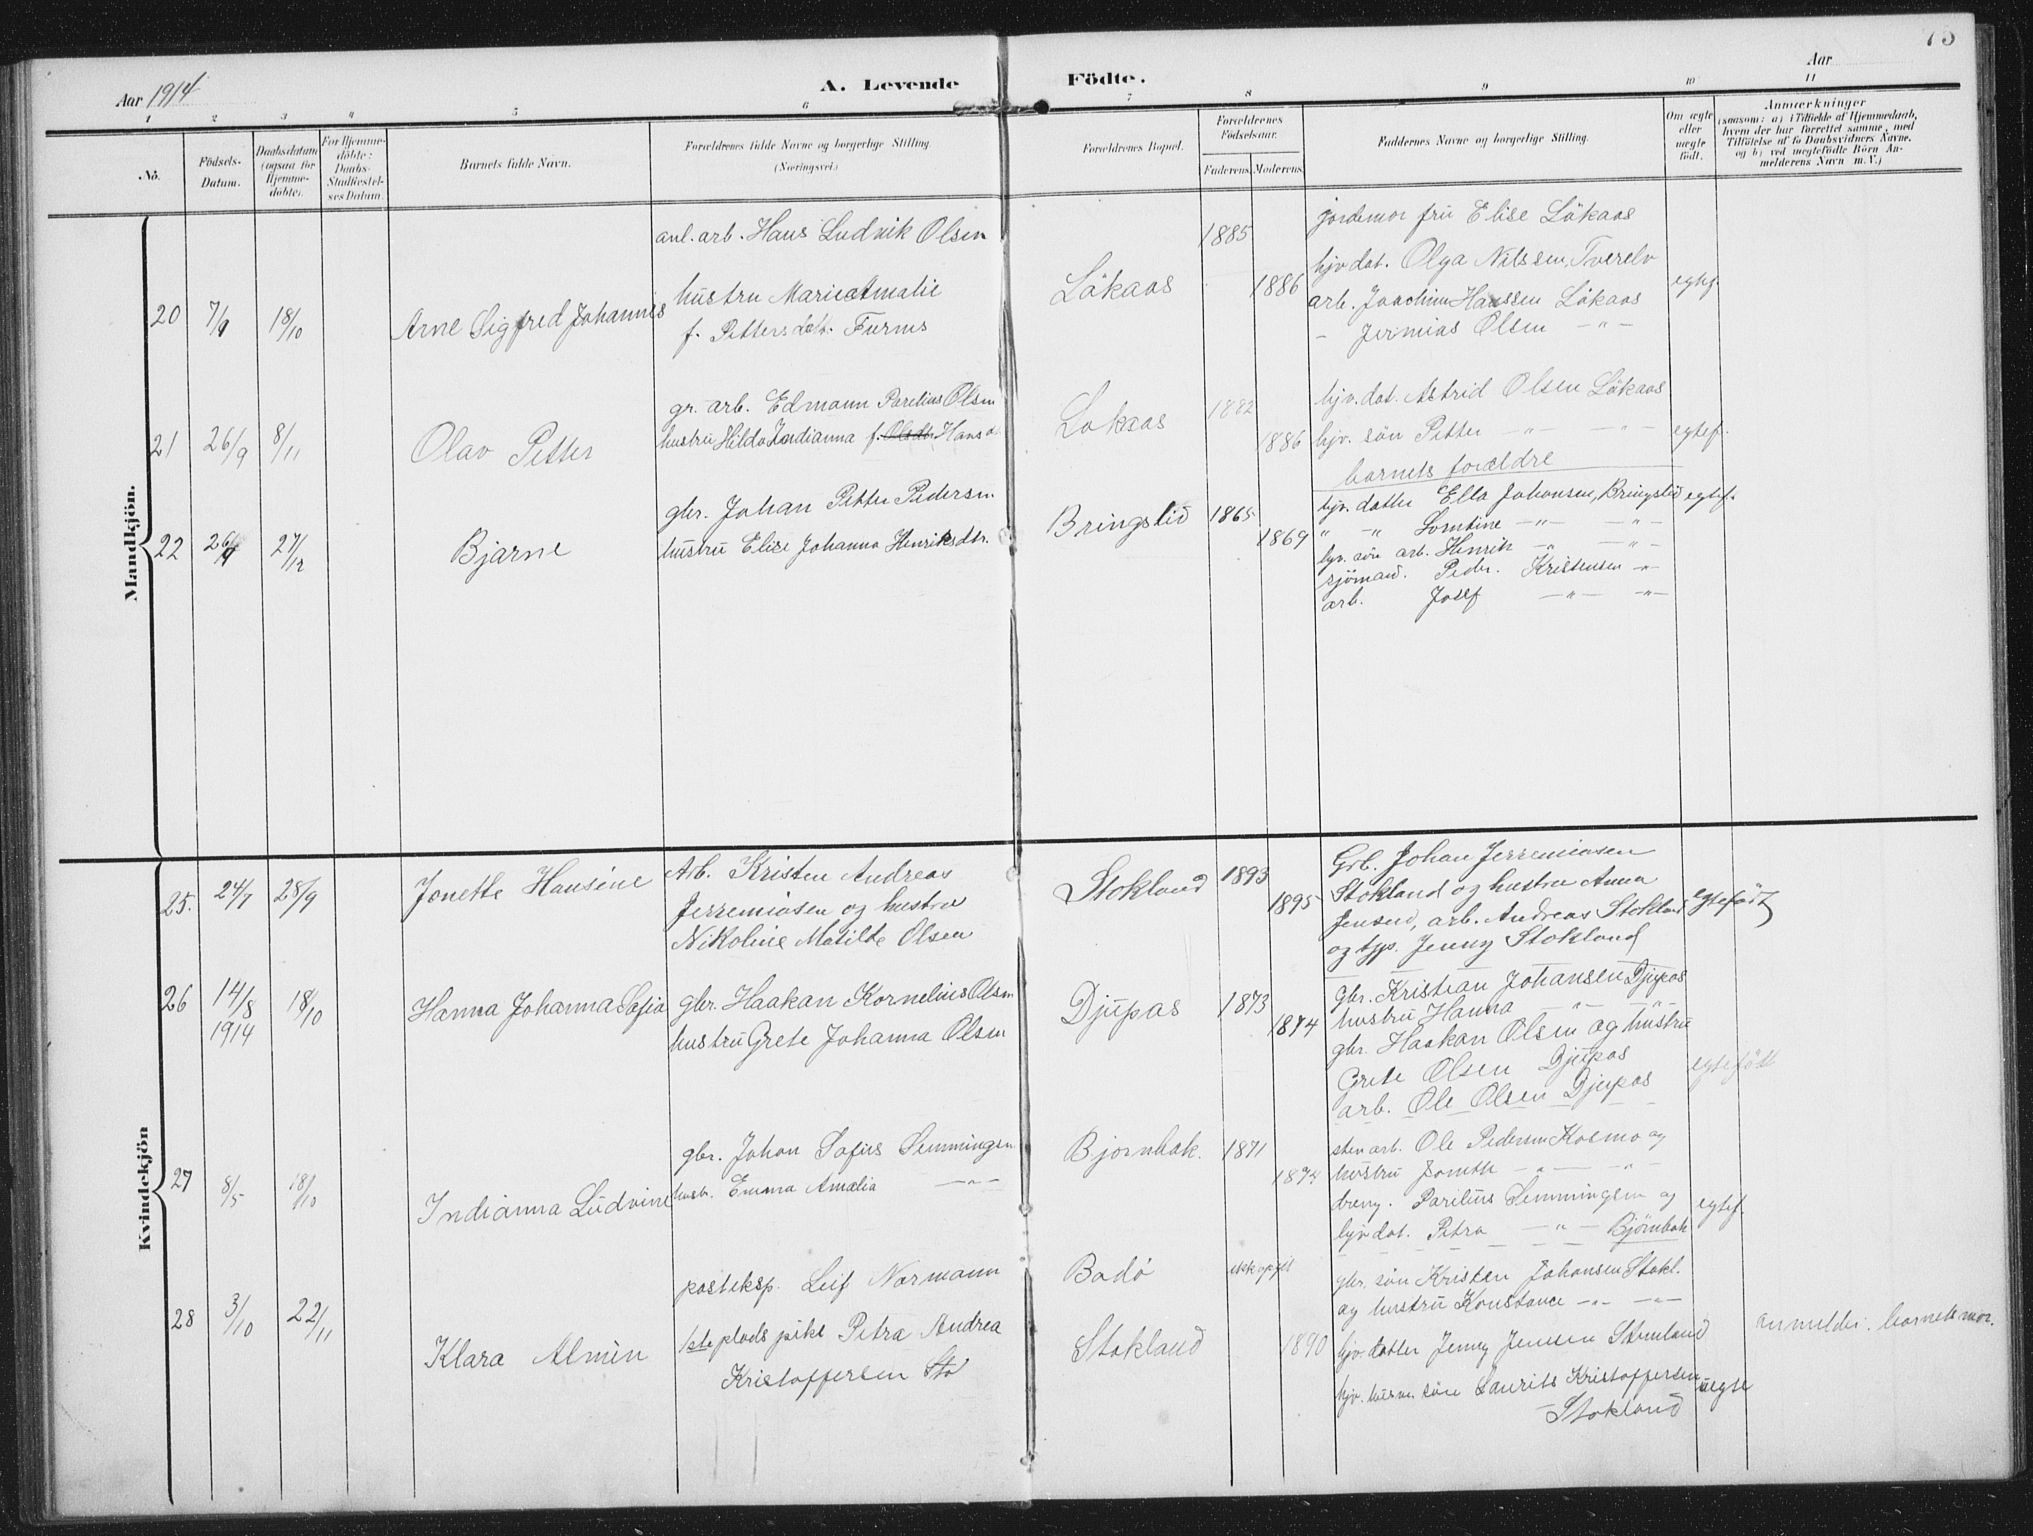 Aar 1914
A. Levende
Födte.
Aar
1 2 3 4 5 6 7 8 9 10 11
No.
Födsels-Datum.
Daabsdatum (ogsaa for Hjemme-döbte).
For Hjemme-döbte: Daabs-Stadfæstel-ses Datum.
Barnets fulde Navn.
Forældrenes fulde Navne og borgerlige Stilling. (Næringsvei.)
Forældrenes Bopæl.
Forældrenes Födselsaar.
Faderens. Moderens.
Faddernes Navne og borgerlige Stilling.
Om ægte eller uægte født.
Anmærkninger
(saasom: a) i Tilfælde af Hjemmedaab, hvem der har forrettet samme, med Tilføielse af to Daabsvidners Navne, og b) ved uægtefödte Börn An-melderens Navn m. V.)
Mandkjön.
20 7/9 18/10 Arne Sigfred Johannes
anl. arb. Hans Ludvik Olsen
hustru Marie Amalie
f. Pettersdatt. Furnes
Lökaas 1885 1886
jordemor fru Elise Lökaas
hjv dat. Olga Nilssen, Tverelv
arb. Joachim Hanssen Lökaas
- Jermias Olsen - " -
egtef.
21 26/9 8/11 Olav Petter
gr. arb. Edmann Parelius Olsen
hustru Hilda Indianna f. Olsdtr Hans
Lokaas 1882 1886
hjv. dat. Astrid Olsen Lökaas
hjv. sön Petter - " - - " -
barnets forældre
egtef.
22 26/9 27/12 Bjarne
gbr. Johan Petter Pedersen
hustru Elise Johanna Henriksdtr.
Bringslid 1865 1869
hjv. datter Ella Johansen, Bringslid
" " Lorntine - " - - " -
hjv. sön arb. Henrik - " - - " -
sjömand. Peder. Kristensen - " -
arb. Josef - " - - " -
egtef.
Kvindekjön
25. 24/7 28/9 Jonette Hansine
Arb. Kristen Andreas
Jerremiasen og hustru
Nikoline Matilde Olsen
Stokland 1893 1895
Grb. Johan Jerremiasen
Stokland og hustru Anna
Jensen, arb. Andreas Stokland
og tjp. Jenny Stokland
egtefödt
26 14/8 1914 18/10 Hanna Johanna Sofia
gbr. Haakan Kornelius Olsen
hustru Grete Johanna Olsen
Djupas 1873 1874
gbr. Kristian Johansen Djupas
hustru Hanna - " - - " -
gbr. Haakan Olsen og hustru
Grete Olsen Djupas
arb. Ole Olsen Djupas
egtefödt
27 8/5 18/10 Indianna Ludvine
gbr. Johan Sofus Lemmingsen
hustr. Emma Amalia - " -
Bjornbak. 1871 1874
sten arb. Ole Pedersen Kosmo og
hustru Jonette - " - - " -
dreng. Parilius Lemmingsen og
hjv dat. Petra - " - Bjørnbak
egtef.
28 3/10 22/11 Klara Almin
posteksp. Leif Normann
1ste plads pike Petra Andrea
Kristoffersen Sto
Bodö
Stokland
ikk opgit 1890
gbr. sön Kristen Johansen Stokl.
og hustru Konstance - " - - " -
hjv. datter Jenny Jensen Stenland
hjv. husm. søn Laurits Kristoffersen
Stokland
uegte
anmelder: barnets mor.